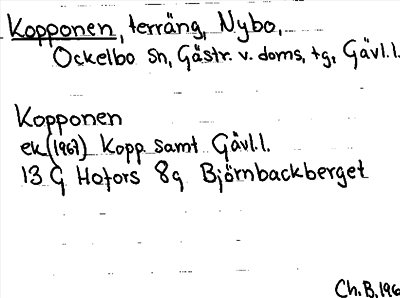 Kopponen, terräng, Nybo,
Ockelbo Sn, Gästr. v. doms, tg, Gävl.l.
Kopponen
ek (1967) Kopp samt Gävl.l.
13 G Hofors 8g Björnbackberget
Ch.B. 196